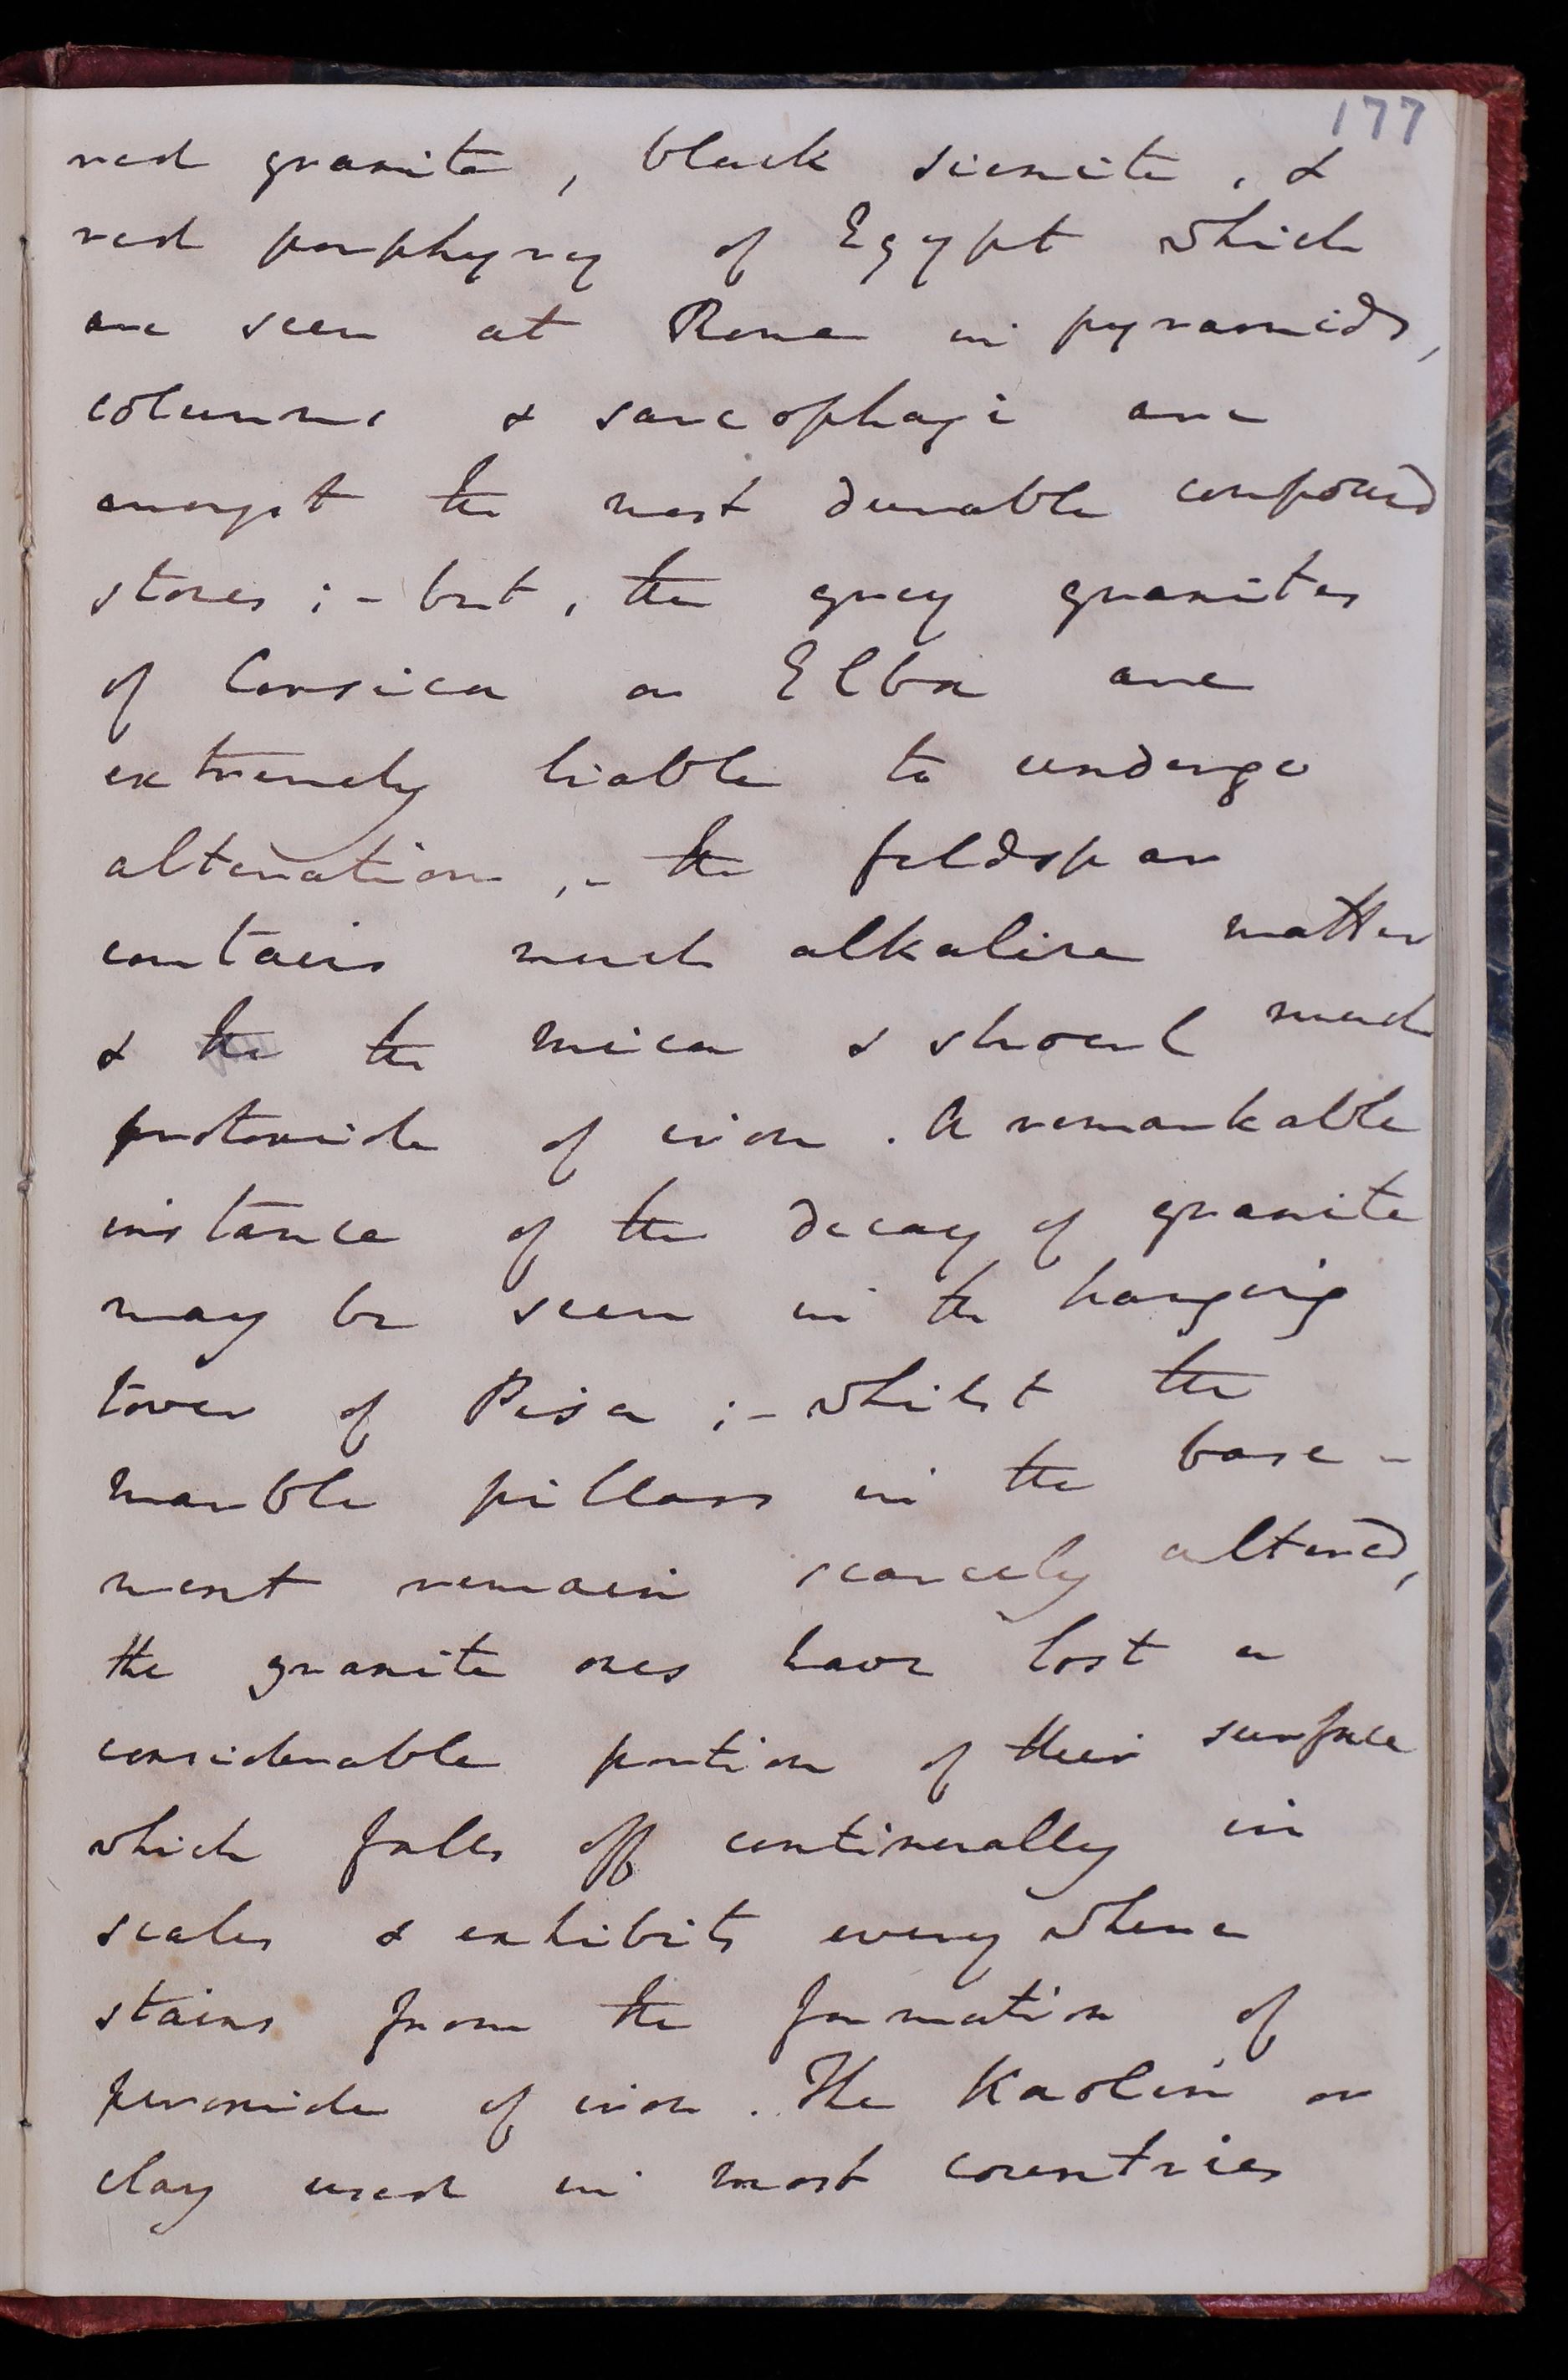 177
red granite, black sienite, &
red porphyry of Egypt which
are seen at Rome in pyramids,
columns & sarcophagi are
amongst the most durable compound
stones;- but, the grey granites
of Corsica or Elba are
extremely liable to undergo
alteration,- the feldspar
contains much alkaline matter
& the the mica & shourl much
protoxide of iron. A remarkable
instance of the decay of granite
may be seen in the hanging
tower of Pisa;- whilst the
marble pillars in the base-
ment remain scarcely altered,
the granite ones have lost a
considerable portion of their surface
which falls off continually in
scales & exhibits every where
stains from the formation of
peroxide of iron. The Kaolin or
clay used in most countries